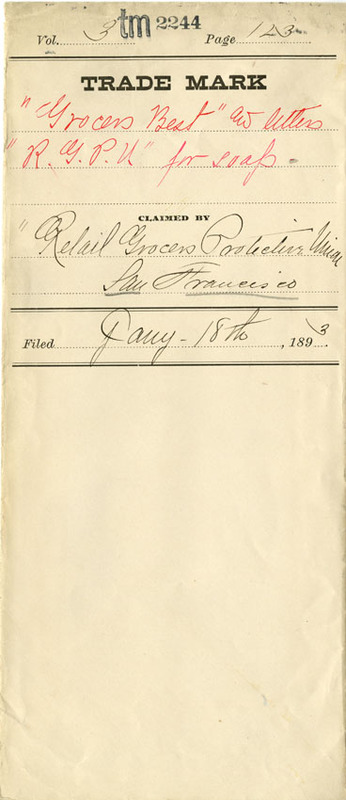 Vol. 3 tm 2244 Page 123
TRADE MARK
"Grocers Best" and letters
"R. G. P. U" for soap
CLAIMED BY
"Retail Grocers Protective Union
San Francisco
Filed Jany - 18th, 1893